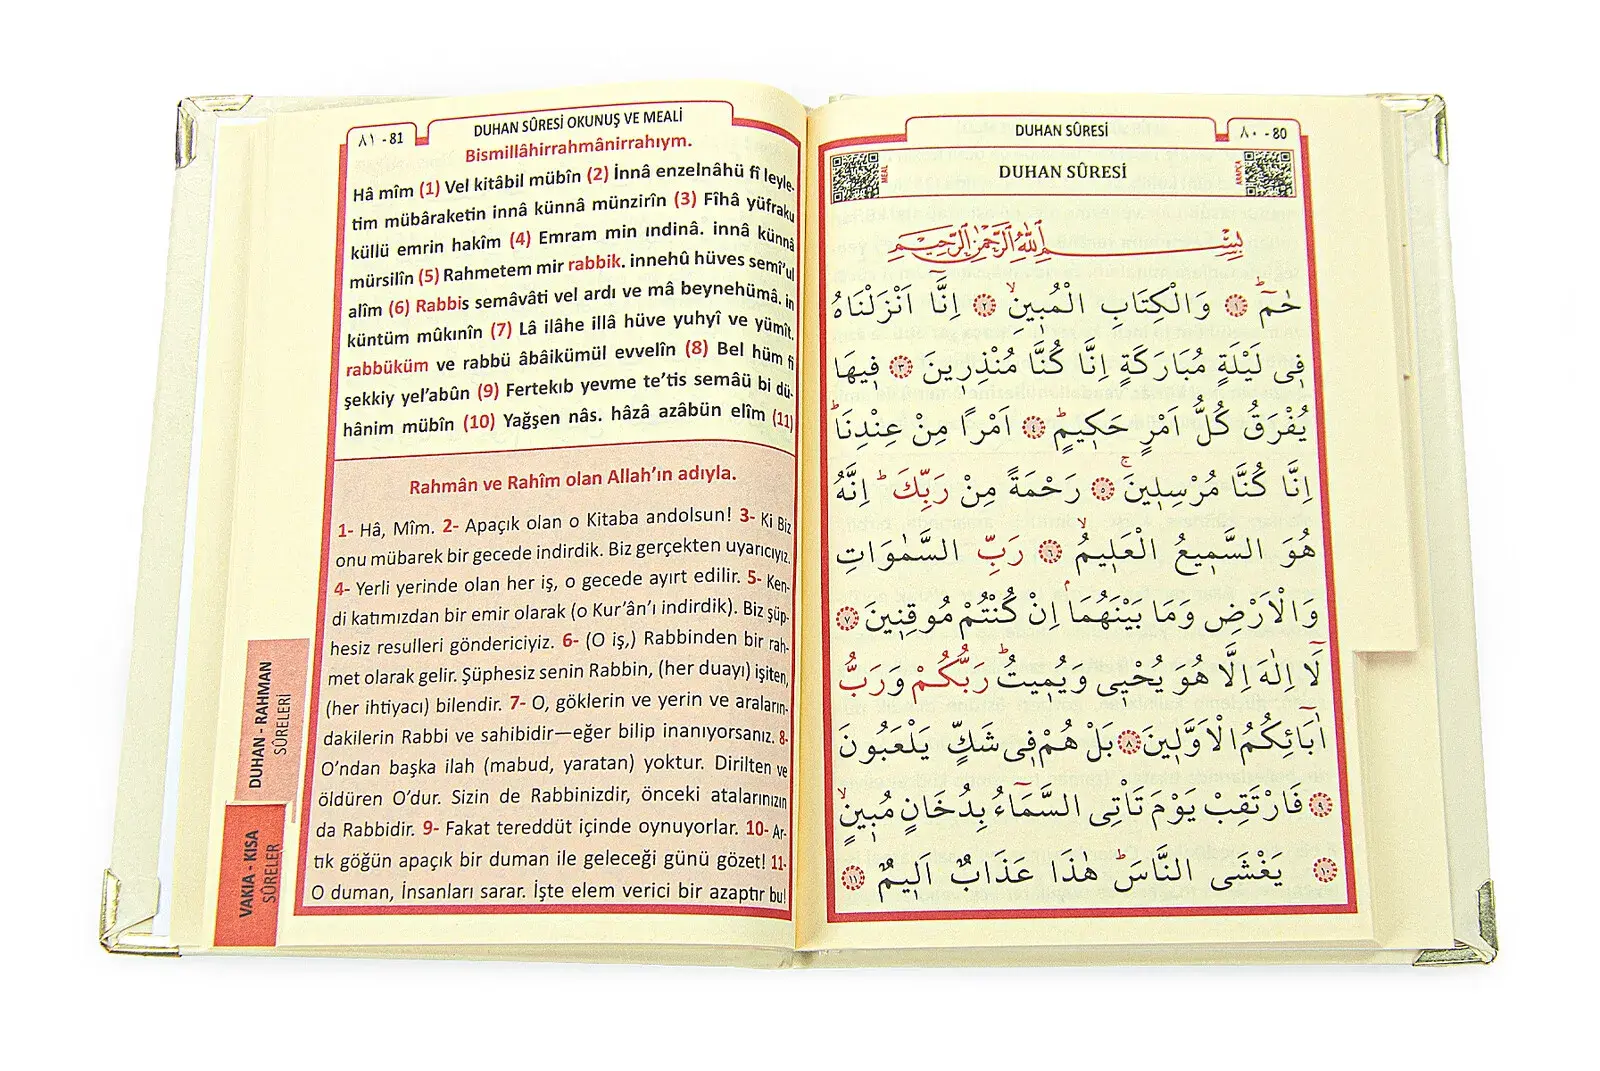 ٨١ - 81
DUHAN SÛRESİ OKUNUŞ VE MEALİ
Bismillâhirrahmânirrahıym.
Hâ mîm (1) Vel kitâbil mübîn (2) İnnâ enzelnâhü fî leyle-
tim mübâraketin innâ künnâ münzirîn (3) Fîhâ yüfraku
küllü emrin hakîm (4) Emram min ındinâ. innâ künnâ
mürsilîn (5) Rahmetem mir rabbik. innehû hüves semî'ul
alîm (6) Rabbis semâvâti vel ardı ve mâ beynehümâ. in
küntüm mûkınîn (7) Lâ ilâhe illâ hüve yuhyî ve yümît.
rabbüküm ve rabbü âbâikümül evvelîn (8) Bel hüm fî
şekkiy yel'abûn (9) Fertekıb yevme te'tis semâü bi dü-
hânim mübîn (10) Yağşen nâs. hâzâ azâbün elîm (11)
Rahmân ve Rahîm olan Allah'ın adıyla.
1- Hâ, Mîm. 2- Apaçık olan o Kitaba andolsun! 3- Ki Biz
onu mübarek bir gecede indirdik. Biz gerçekten uyarıcıyız.
4- Yerli yerinde olan her iş, o gecede ayırt edilir. 5- Ken-
di katımızdan bir emir olarak (o Kur'ân'ı indirdik). Biz şüp-
hesiz resulleri göndericiyiz. 6- (O iş,) Rabbinden bir rah-
met olarak gelir. Şüphesiz senin Rabbin, (her duayı) işiten,
(her ihtiyacı) bilendir. 7- O, göklerin ve yerin ve araların-
dakilerin Rabbi ve sahibidir—eğer bilip inanıyorsanız. 8-
O'ndan başka ilah (mabud, yaratan) yoktur. Dirilten ve
öldüren O'dur. Sizin de Rabbinizdir, önceki atalarınızın
da Rabbidir. 9- Fakat tereddüt içinde oynuyorlar. 10- Ar-
tık göğün apaçık bir duman ile geleceği günü gözet! 11-
O duman, İnsanları sarar. İşte elem verici bir azaptır bu!
DUHAN - RAHMAN
SÛRELERİ
VAKIA - KISA
SÛRELER
DUHAN SÛRESİ
٨٠ - 80
MEAL
DUHAN SÛRESİ
ARAPÇA
بِسْمِ اللهِ الرَّحْمٰنِ الرَّحِيمِ
حٰمٓ ۚ ﴿١﴾ وَالْكِتَابِ الْمُبِينِ ۙ ﴿٢﴾ اِنَّٓا اَنْزَلْنَاهُ
فِي لَيْلَةٍ مُبَارَكَةٍ اِنَّا كُنَّا مُنْذِرِينَ ﴿٣﴾ فِيهَا
يُفْرَقُ كُلُّ اَمْرٍ حَكِيمٍ ۙ ﴿٤﴾ اَمْرًا مِنْ عِنْدِنَا ۜ
اِنَّا كُنَّا مُرْسِلِينَ ۚ ﴿٥﴾ رَحْمَةً مِنْ رَبِّكَ ۜ اِنَّهُ
هُوَ السَّمِيعُ الْعَلِيمُ ۙ ﴿٦﴾ رَبِّ السَّمٰوَاتِ
وَالْاَرْضِ وَمَا بَيْنَهُمَا ۢ اِنْ كُنْتُمْ مُوقِنِينَ ﴿٧﴾
لَٓا اِلٰهَ اِلَّا هُوَ يُحْيِي وَيُمِيتُ ۜ رَبُّكُمْ وَرَبُّ
اٰبَٓائِكُمُ الْاَوَّلِينَ ﴿٨﴾ بَلْ هُمْ فِي شَكٍّ يَلْعَبُونَ
﴿٩﴾ فَارْتَقِبْ يَوْمَ تَاْتِي السَّمَٓاءُ بِدُخَانٍ مُبِينٍ ۙ
﴿١٠﴾ يَغْشَى النَّاسَ ۜ هٰذَا عَذَابٌ اَلِيمٌ ﴿١١﴾